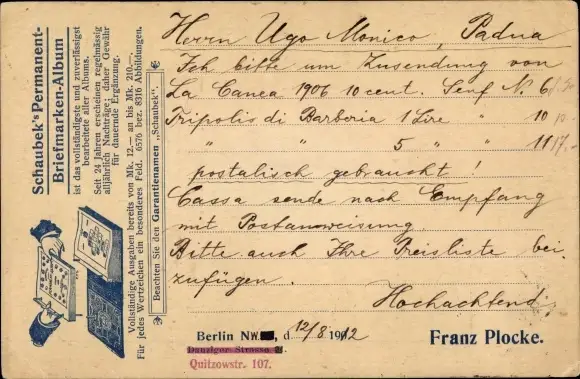 Schaubek's Permanent-
Briefmarken-Album
ist das vollständigste und zuverlässigst
bearbeitete aller Albums.
Seit 24 Jahren erscheinen regelmässig
alljährlich Nachträge; daher Gewähr
für dauernde Ergänzung.
Vollständige Ausgaben bereits von Mk. 12.— an bis Mk. 210.—.
Für jedes Wertzeichen ein besonderes Feld. 6576 bez. 8316 Abbildungen.
Beachten Sie den Garantienamen „Schaubek“.
Herrn Ugo Monico, Padua
Ich bitte um Zusendung von
La Canea 1906 10 cent. Senf N. 6
Tripolis di Barberia 1 Lire " 10
" " 5 " " 11
postalisch gebraucht!
Cassa sende nach Empfang
mit Postanweisung
Bitte auch Ihre Preisliste bei-
zufügen.
Hochachtend,
Berlin NW. , d. 12/8 1912
Franz Plocke.
Danziger Strasse
Quitzowstr. 107.